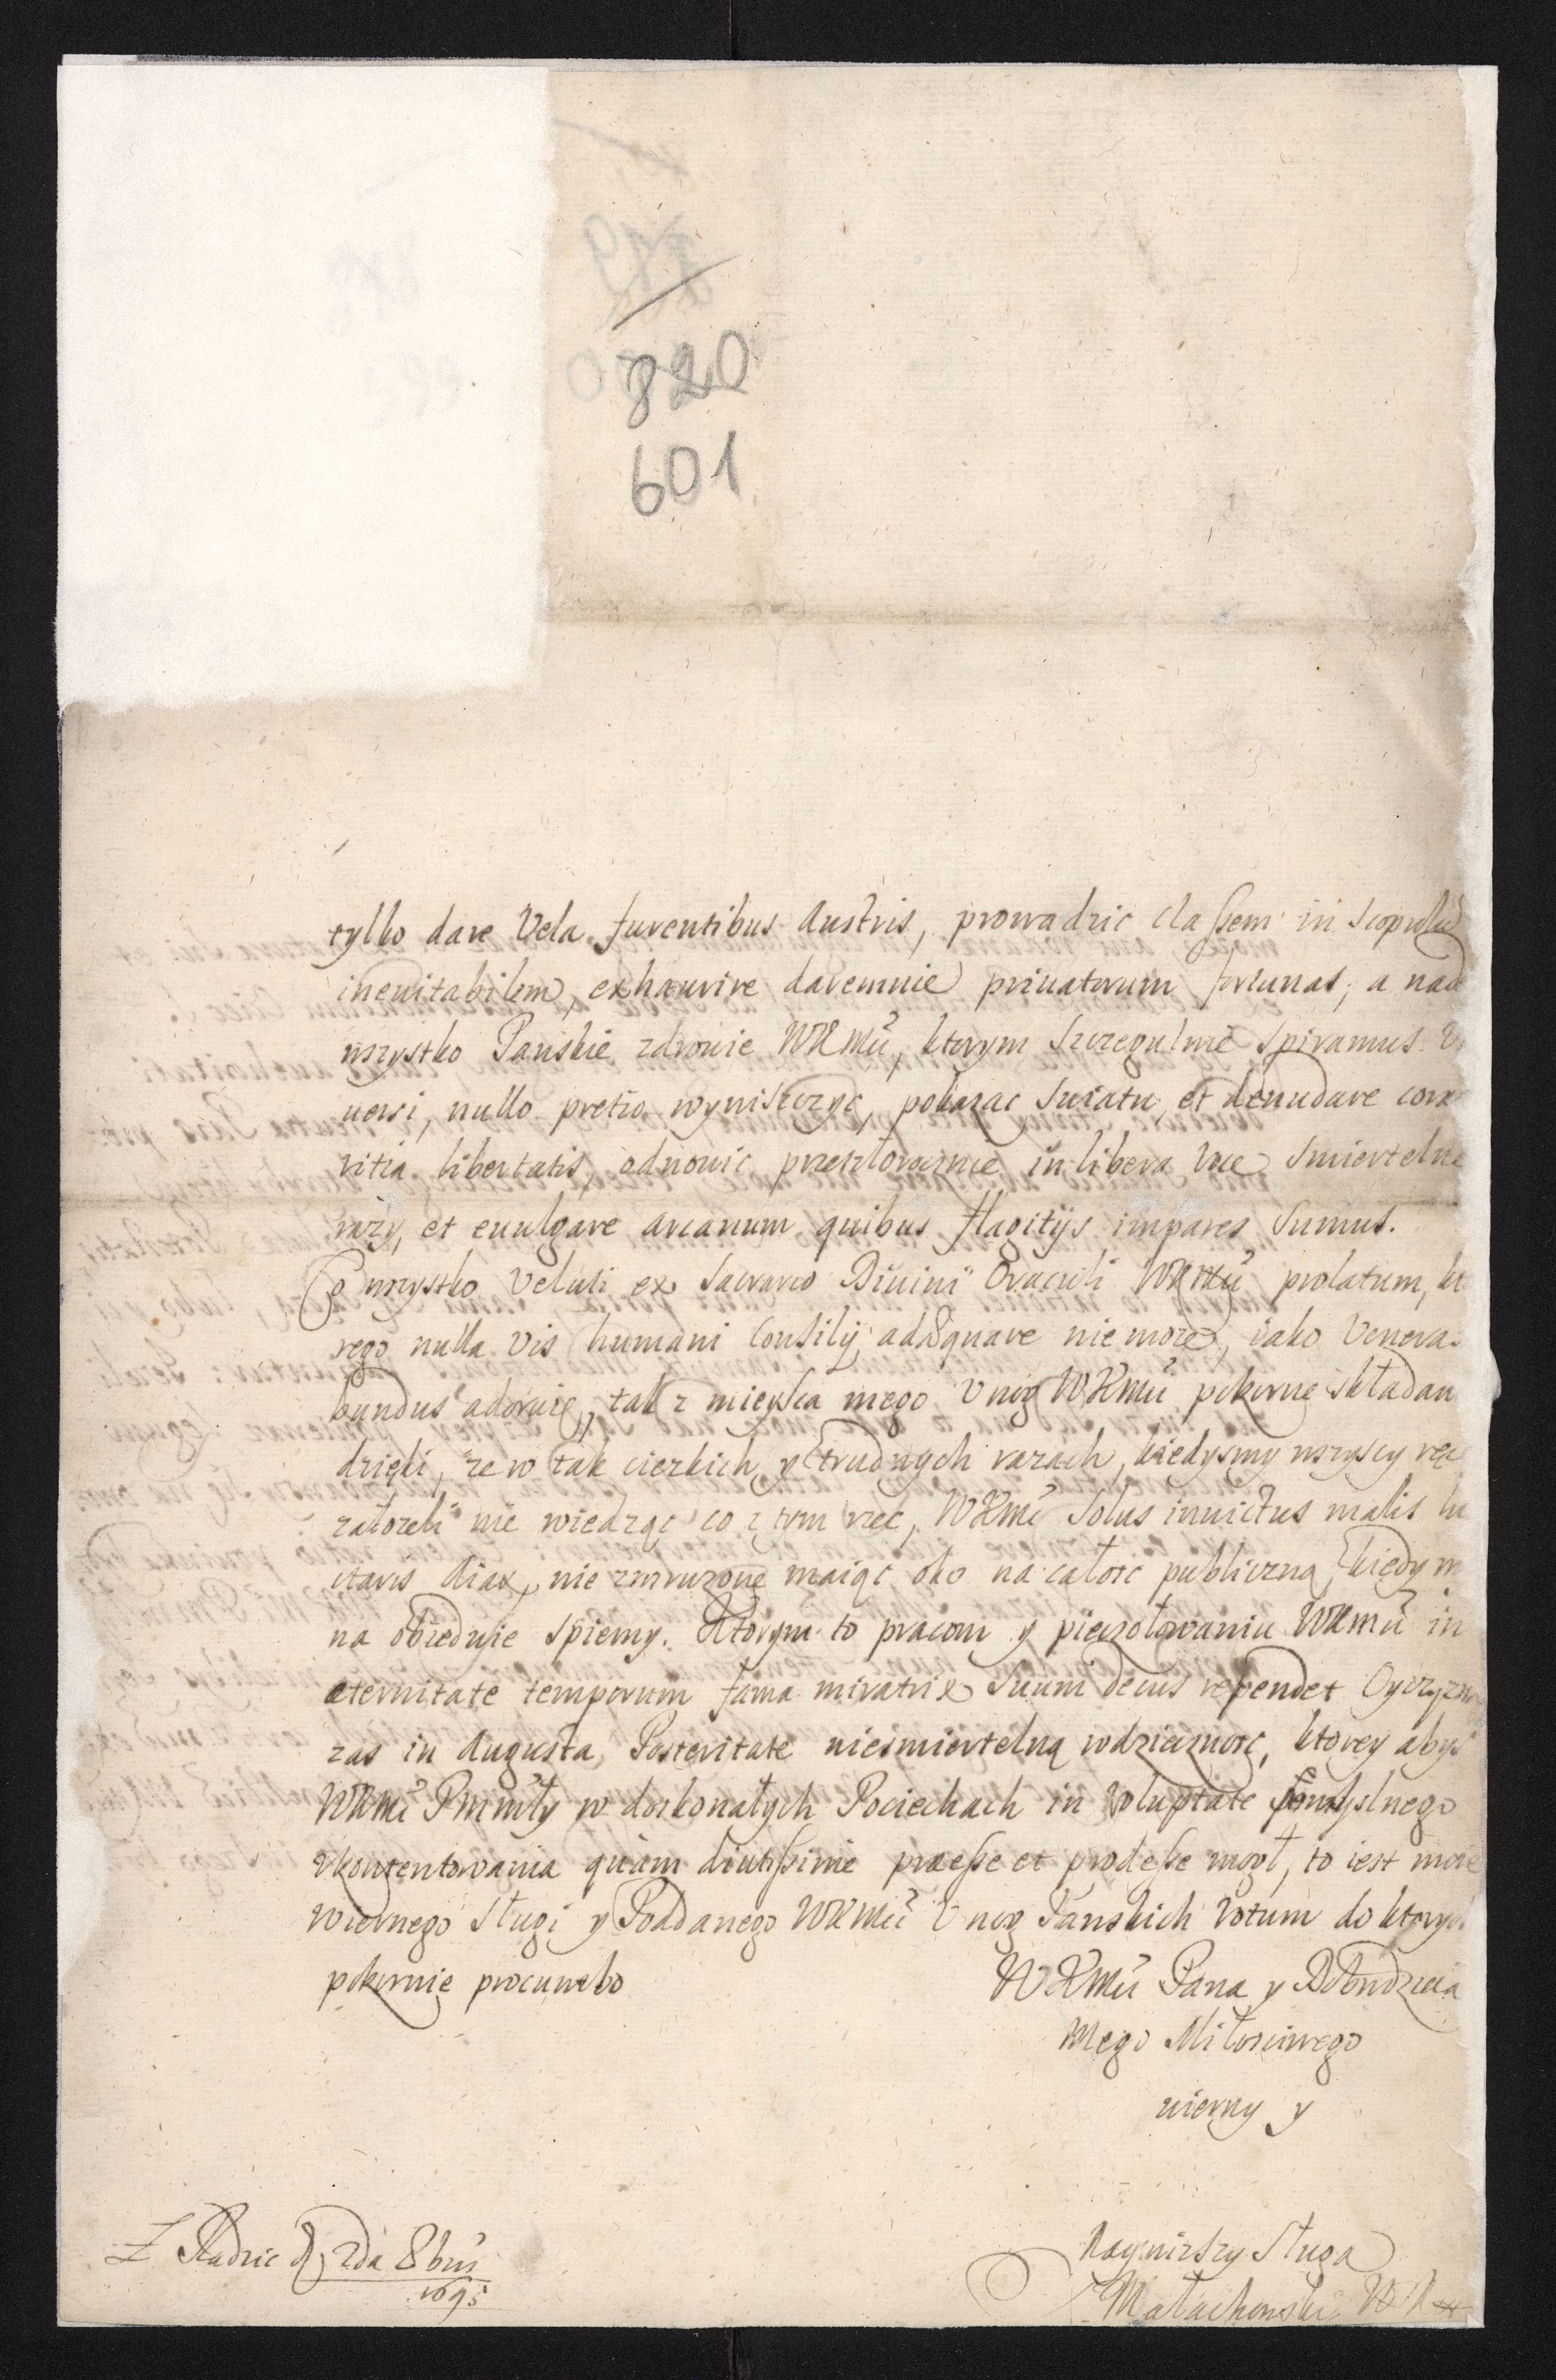 820
601
tylko dare Vela furentibus Austris, prowadzic classem in scopulũ
ineuitabilem, exhaurire daremnie priuatorum fortunas, a nad
wszystko Panskie zdrowie WKMĉi, ktorym szczegulnie spiramus
uersi, nullo pretio wyniszczyc, pokazac swiatu, et denudare
vitia libertatis, odnowic przeszłoroczne in libera voce smiertelne
razy, et euulgare arcanum quibus flagitijs impares sumus.
Co wszystko veluti ex sacrario Diuini Oraculi WKMĉi prolatum, kt
rego nulla vis humani Consilij adæquare nie moze, iako Venera-
bundus adoruię, tak z mieysca mego v nog WKMĉi pokorne składam
dzięki, ze w tak cięzkich y trudnych razach, kiedysmy wszyscy ręce
załozeli nie wiedząc co z tym rzec, WKMĉ solus inuictus malis
Aiax, nie zmruzone maiąc oko na całosc publiczną, kiedy
na obiedwie spiemy. Ktorym to pracom y pieczołowaniu WKMĉi in
æternitate temporum fama miratrix suum decus rependet Oyczyzna
zas in Augusta Posteritate niesmiertelną wdzięcznosc, ktorey abys
WKMĉ PMMiły w doskonałych Pociechach in voluptate pomyslnego
vkontentowania quam diutissime præesse et prodesse mogł, to iest moie
wiernego sługi y Poddanego WKMĉi v nog Panskich votum do ktorych
pokornie procumbo
WKMĉi Pana y Dobrodzieia
Mego Miłosciwego
wierny y
Naynizszy sługa
Małachowski
Z Radzic d. 2da 8bris
1695